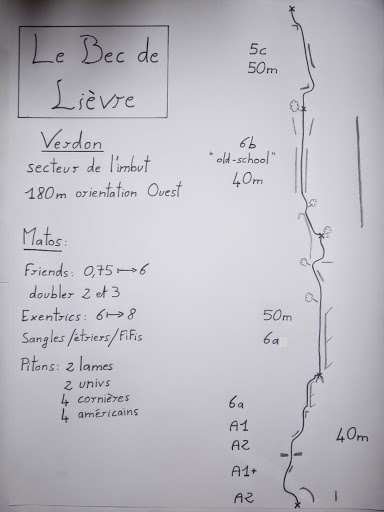 Le Bec de
Lièvre
Verdon
secteur de l'imbut
180m orientation Ouest
Matos:
Friends: 0,75 ↦ 6
doubler 2 et 3
Exentrics: 6 ↦ 8
Sangles/étriers/FiFis
Pitons: 2 lames
2 univs
4 cornières
4 américains
5c
50m
6b
"old-school"
40m
50m
6a
6a
A1
A2
A1+
A2
40m